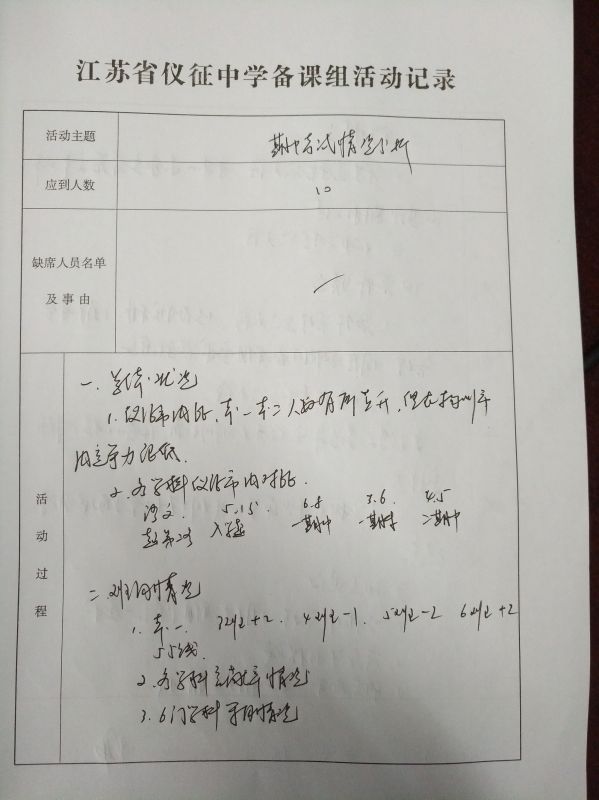 江苏省仪征中学备课组活动记录
活动主题
期中考试情况分析
应到人数
10
缺席人员名单
及事由
活动过程
一、总体状况
1. 仪征市内比,本一本二人数有所上升,但在扬州市
内竞争力很低.
2. 各学科仪征市内对比.
语文 5.15 6.8 3.6. 4.5
超第二名 入学 一期中 一期末 二期中
二、班间情况
1. 本一 3班+2. 4班-1. 5班-2 6班+2
55线.
2. 各学科贡献率情况
3. 6门学科 情况